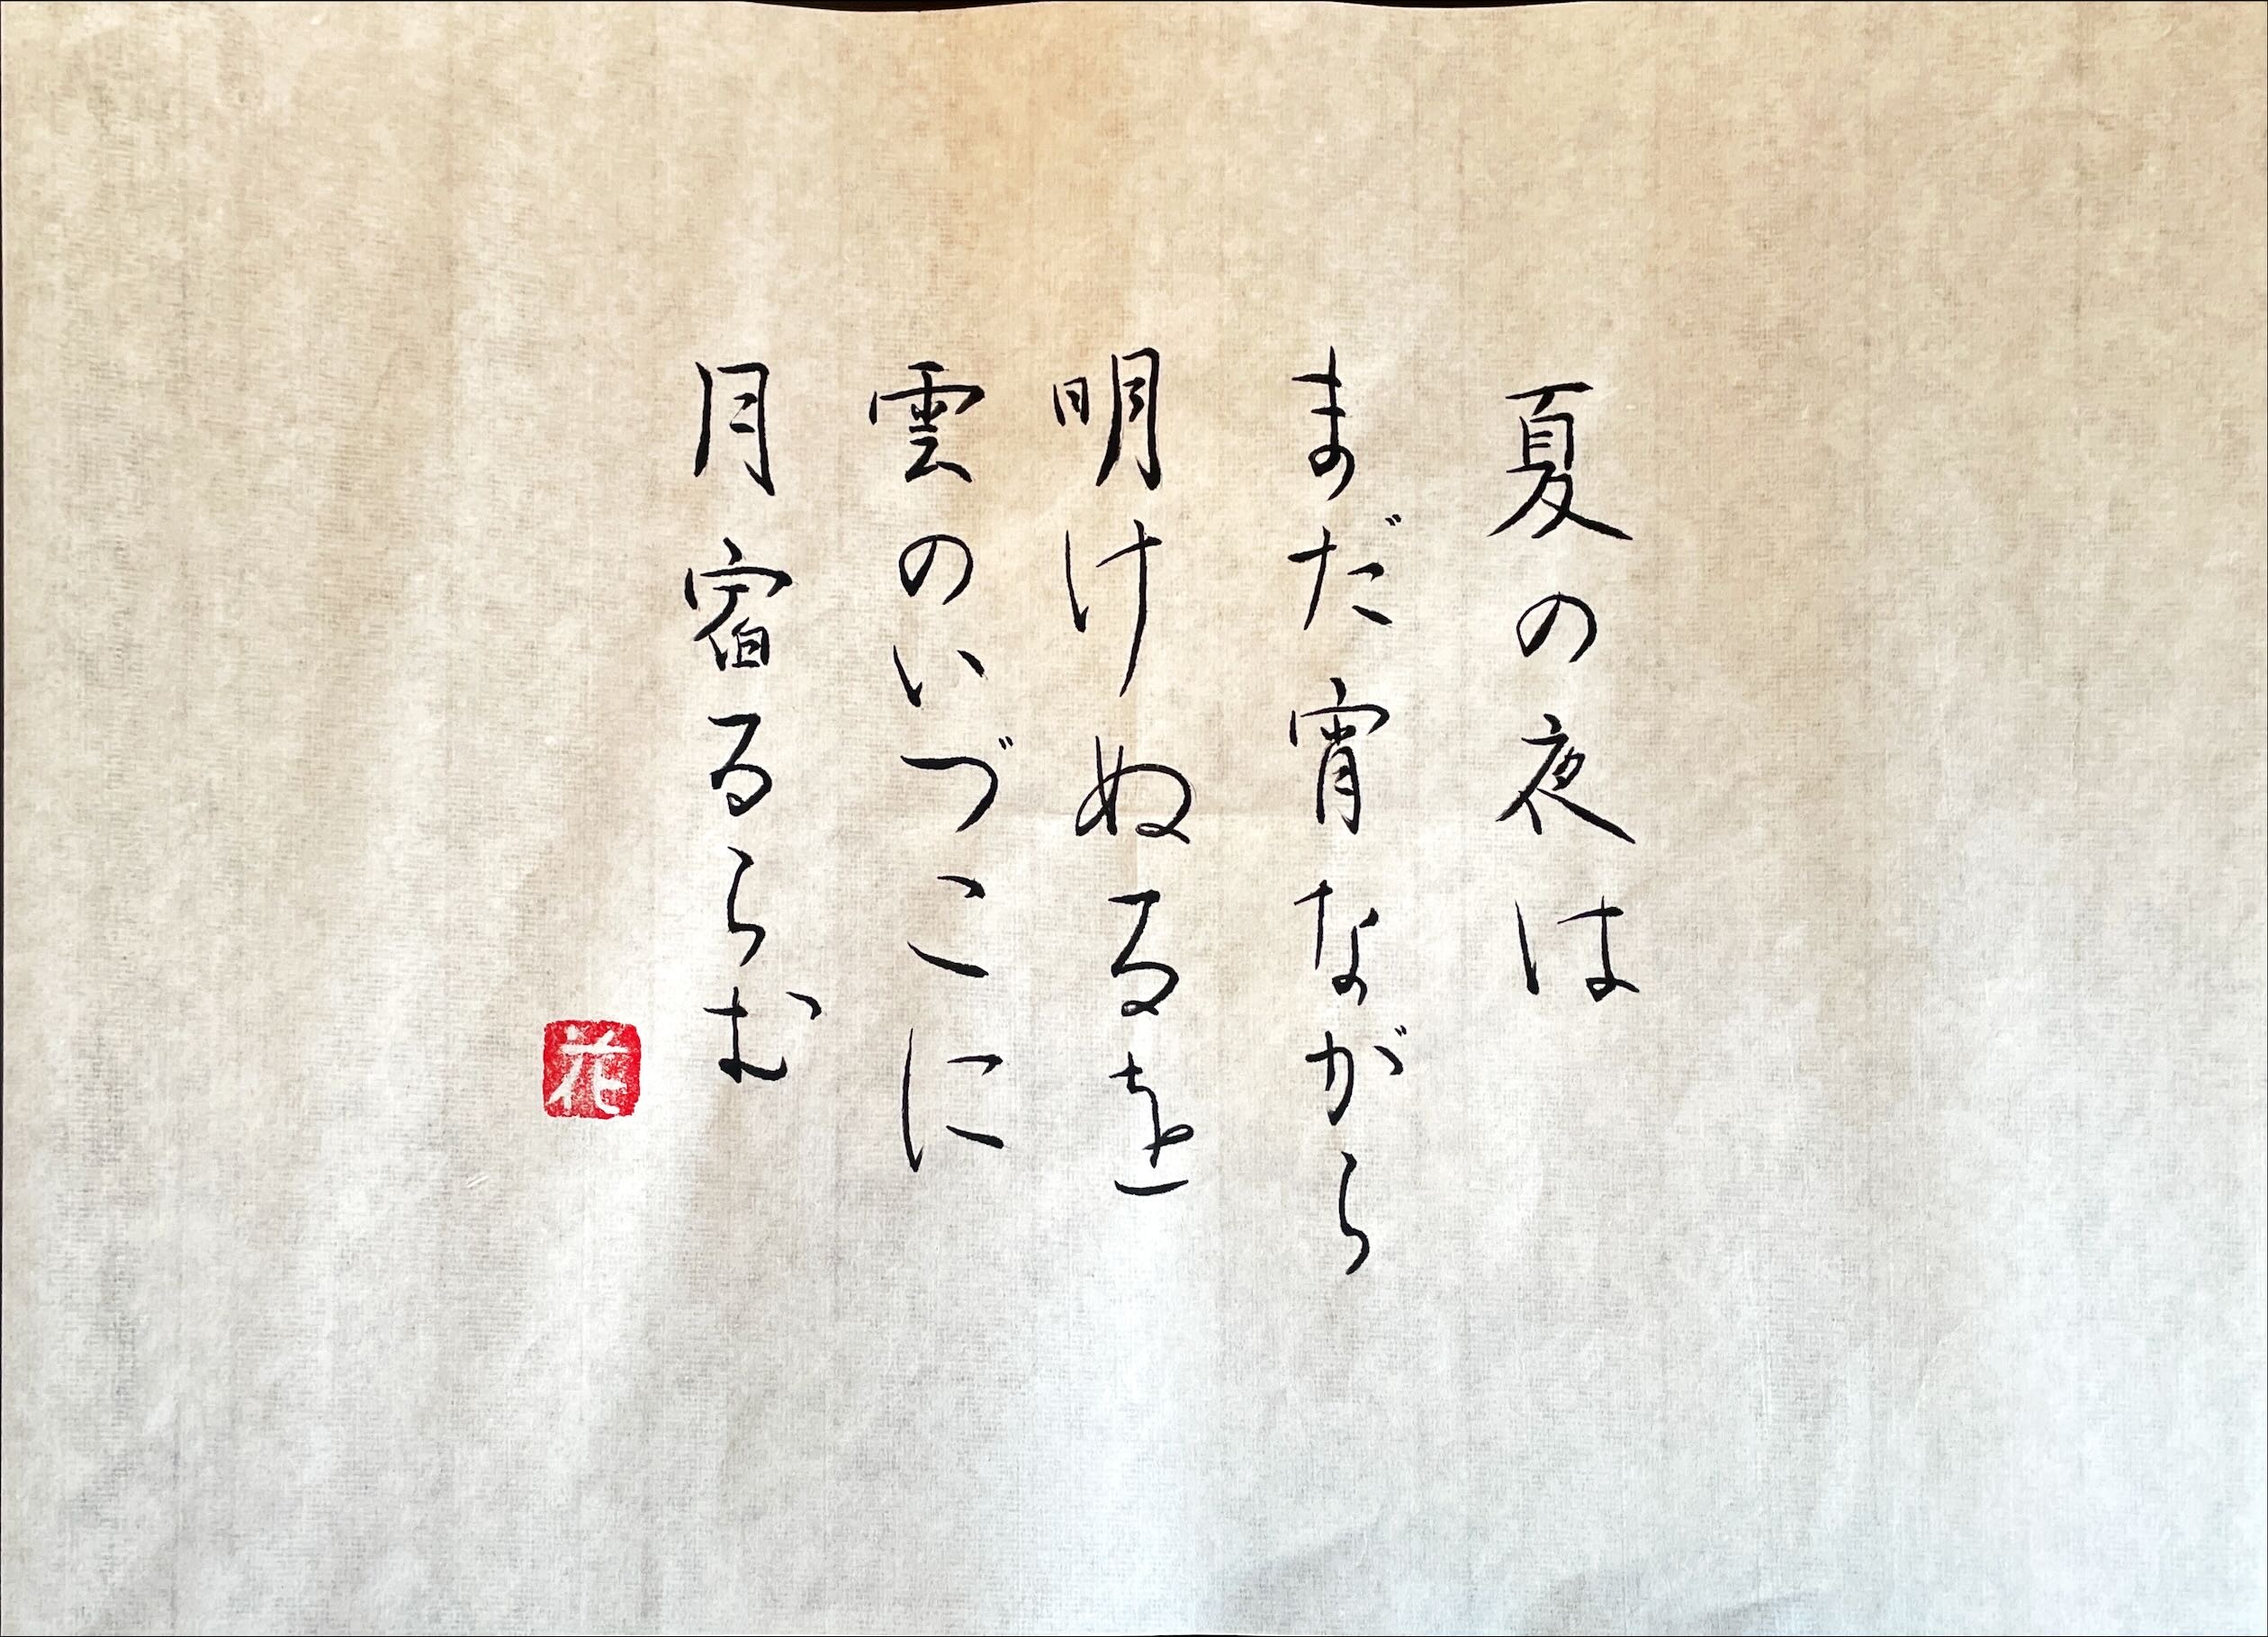 夏の夜は
まだ宵ながら
明けぬるを
雲のいづこに
月宿るらむ
花